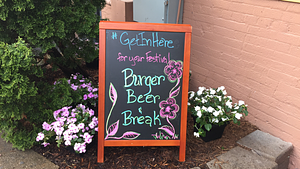 #GetInHere
for your Festival
Burger
Beer
&
Break